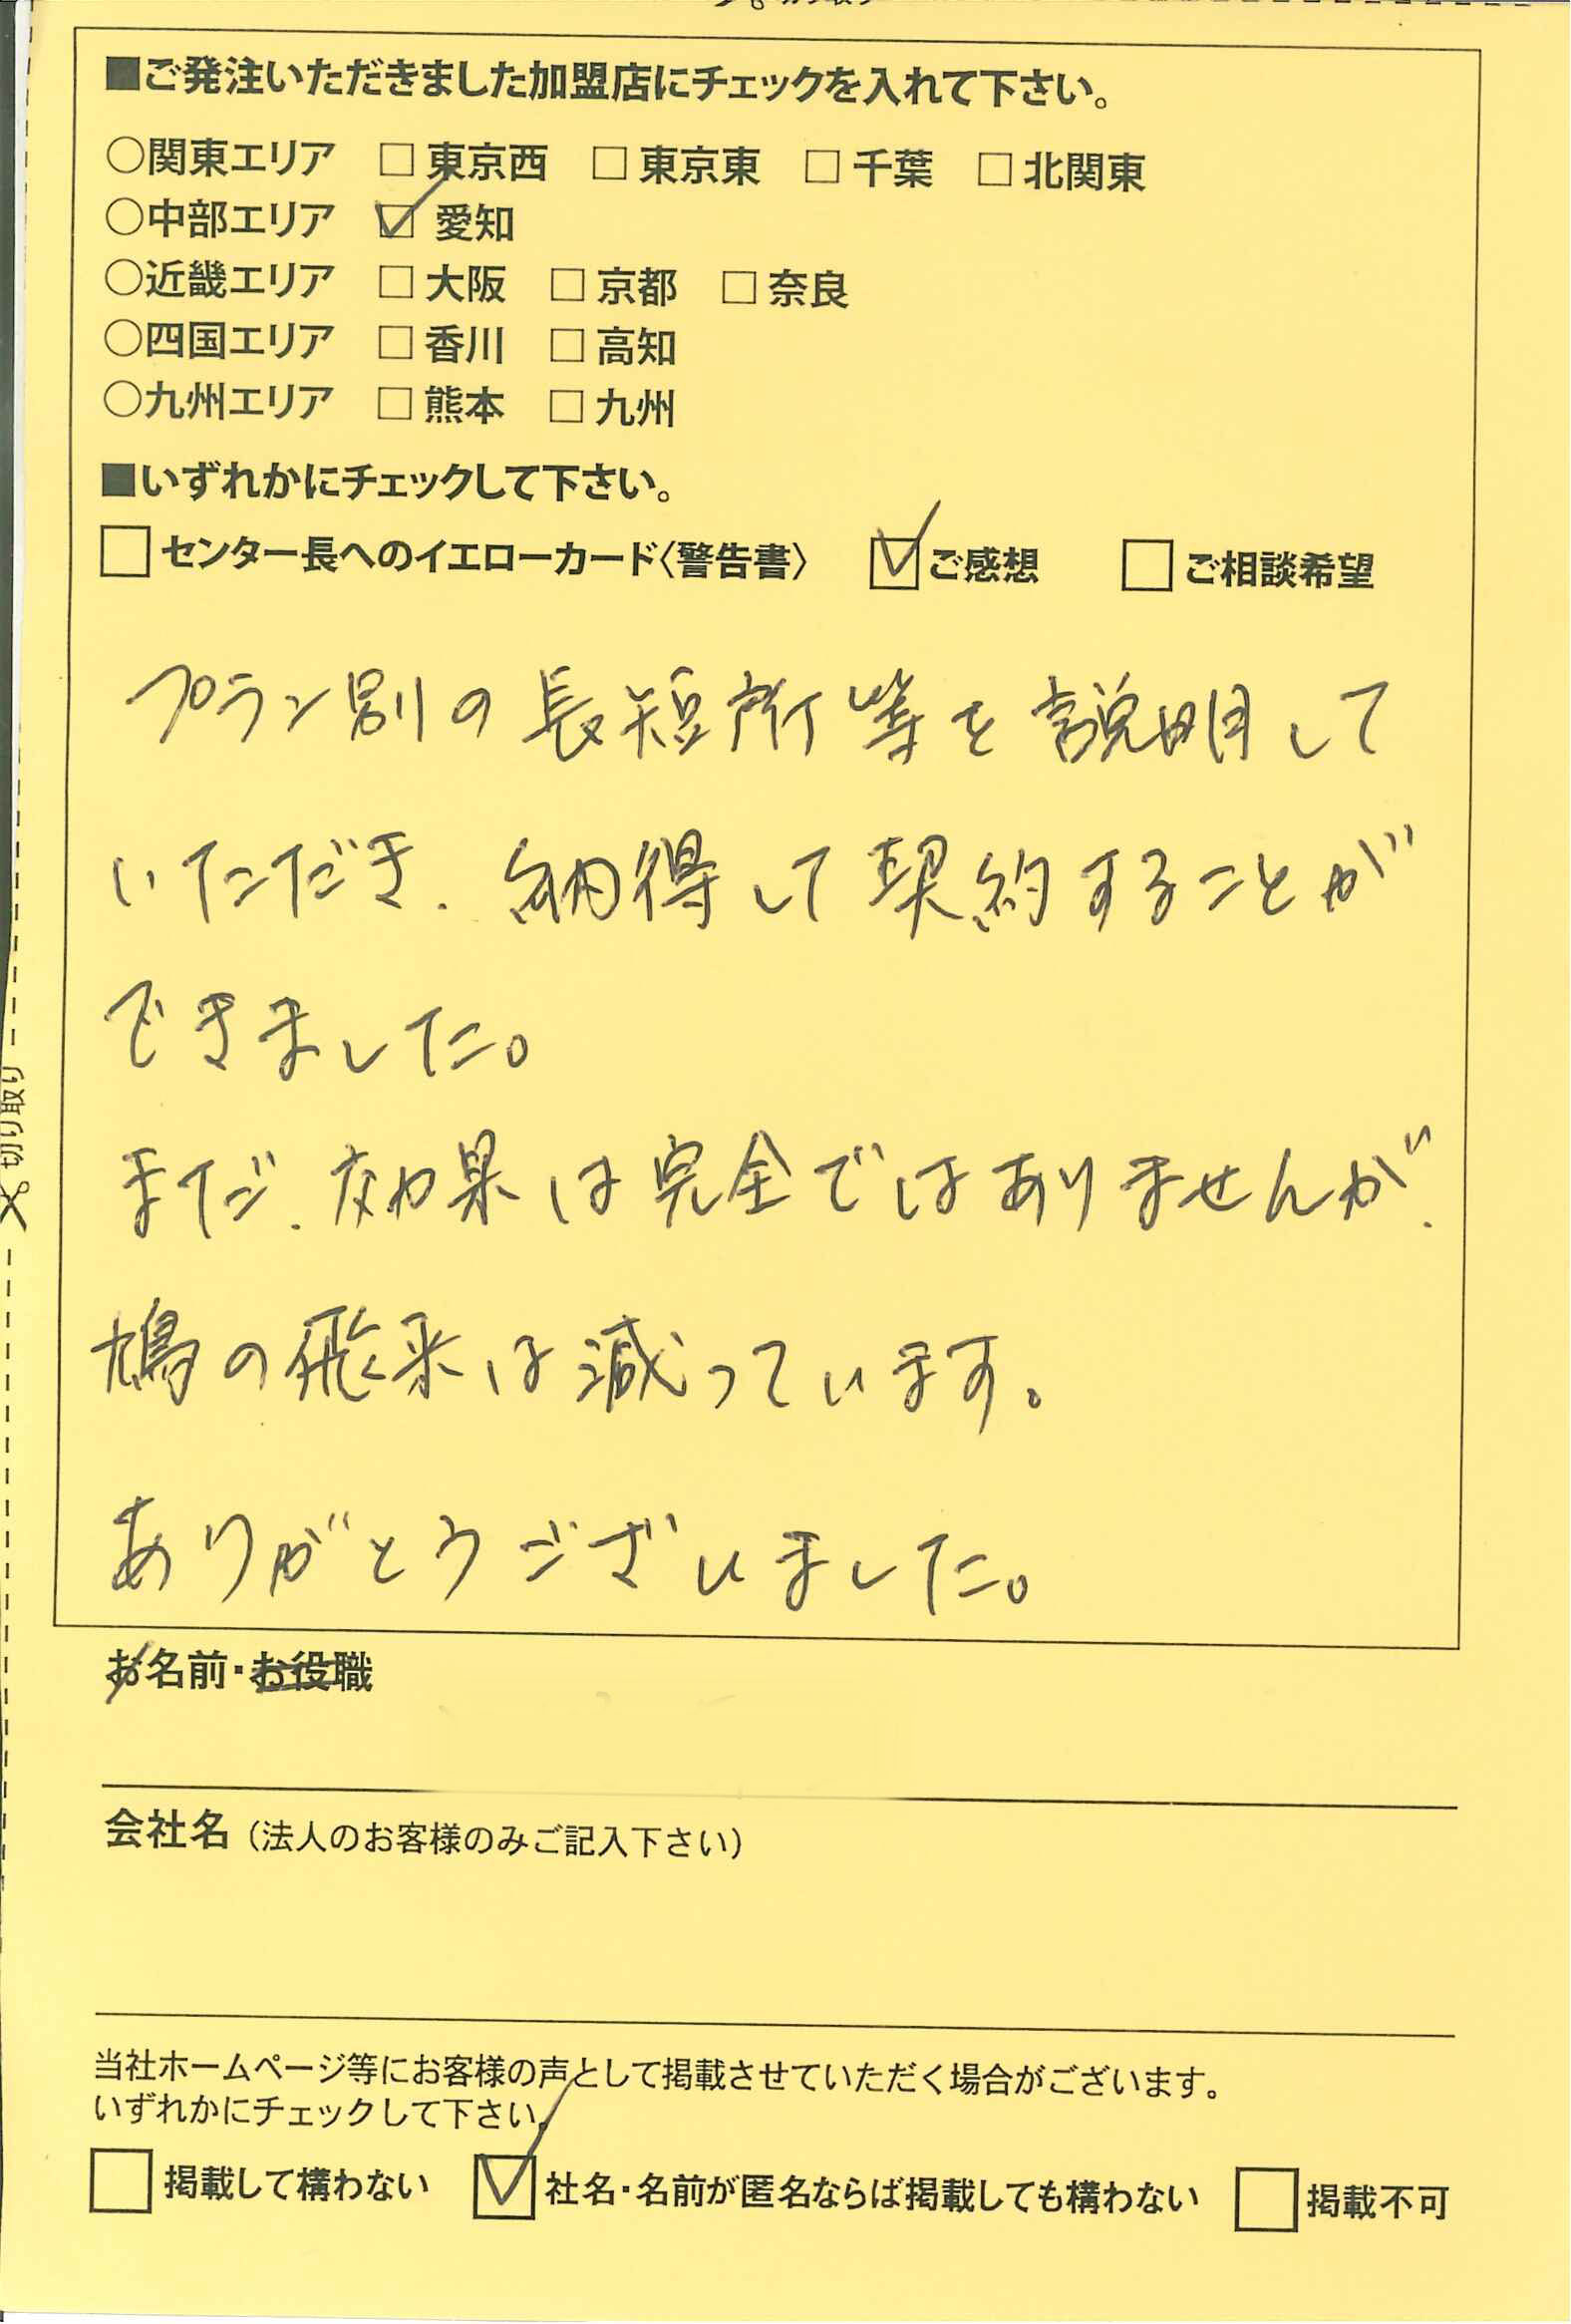 ■ご発注いただきました加盟店にチェックを入れて下さい。
○関東エリア □東京西 □東京東 □千葉 □北関東
○中部エリア ☑愛知
○近畿エリア □大阪 □京都 □奈良
○四国エリア □香川 □高知
○九州エリア □熊本 □九州
■いずれかにチェックして下さい。
□センター長へのイエローカード〈警告書〉 ☑ご感想 □ご相談希望
プラン別の長短所等を説明して
いただき、納得して契約することが
できました。
まだ、効果は完全ではありませんが、
鳩の飛来は減っています。
ありがとうございました。
お名前・お役職
会社名（法人のお客様のみご記入下さい）
当社ホームページ等にお客様の声として掲載させていただく場合がございます。
いずれかにチェックして下さい。
□掲載して構わない ☑社名・名前が匿名ならば掲載しても構わない □掲載不可
切り取り